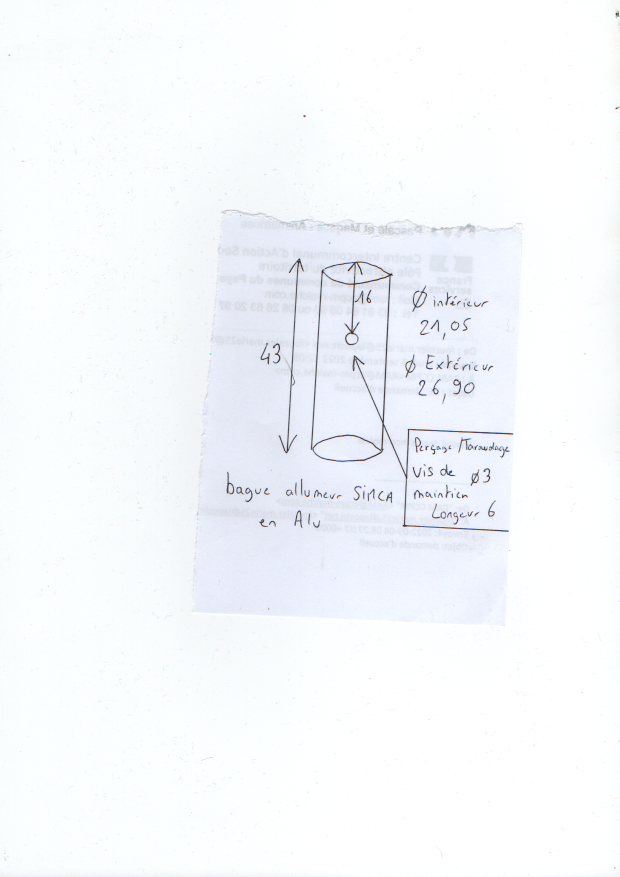 16
43
Ø intérieur
21,05
Ø Extérieur
26,90
Perçage/Taraudage
vis de Ø3
maintien
Longeur 6
bague allumeur SIMCA
en Alu